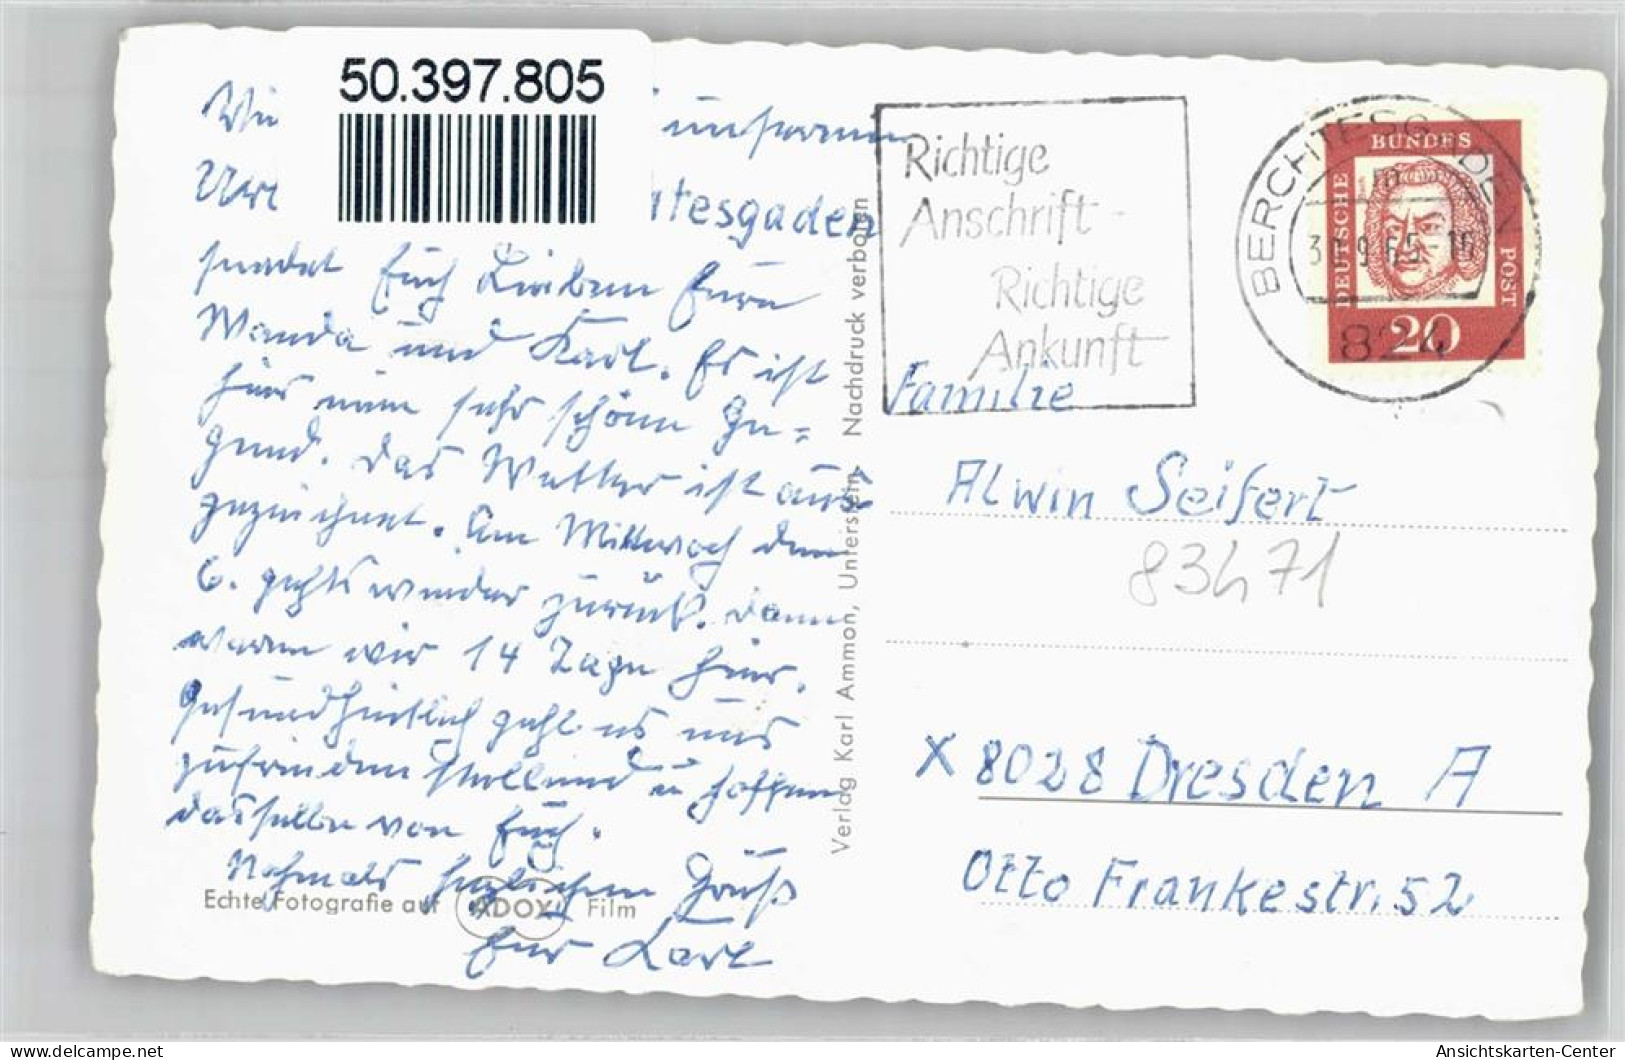 50.397.805
unserem
Url
htesgaden
sendet Euch Lieben Eure
Wanda und Karl. Es ist
hier eine sehr schöne Ge=
gend. Das Wetter ist aus
gezeichnet. Am Mittwoch den
6. gehts wieder zurück. Dann
waren wir 14 Tage hier.
Gesundheitlich geht es uns
zufriedenstellend u hoffen
dasselbe von Euch.
Nochmals herzlichen Gruß
Euer Karl
Echte Fotografie auf ADOX Film
Verlag Karl Ammon, Unterstein Nachdruck verboten
Richtige
Anschrift -
Richtige
Ankunft
BERCHTESGADEN
30.9.65-16
824
DEUTSCHE
BUNDES
POST
20
Familie
Alwin Seifert
83471
X 8028 Dresden A
Otto Frankestr. 52
Ansichtskarten-Center
delcampe.net